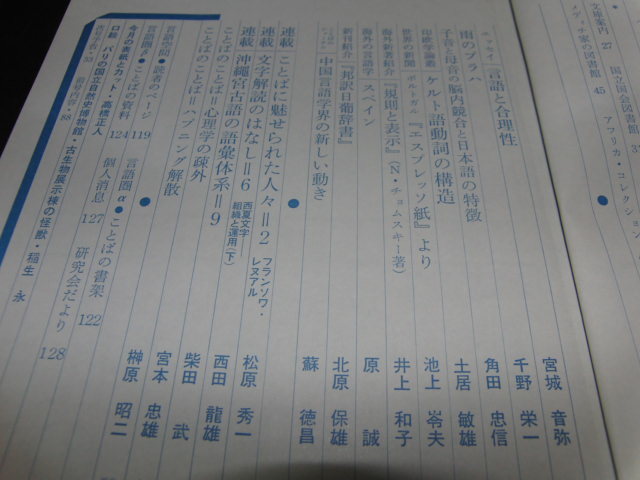 文庫案内 27
メディチ家の図書館 45
国立国会図書館
アフリカ・コレクション
エッセイ 言語と合理性 宮城 音弥
雨のプラハ 千野 栄一
子音と母音の脳内聴音と日本語の特徴 角田 忠信
印欧学論叢 ケルト語動詞の構造 土居 敏雄
世界の新聞 ポルトガル『エスプレッソ紙』より 池上 岺夫
海外新著紹介 『規則と表示』(N・チョムスキー著) 井上 和子
海外の言語学 スペイン 原 誠
新刊紹介 『邦訳日葡辞書』 北原 保雄
中国言語学界の新しい動き 蘇 徳昌
連載 ことばに魅せられた人々=2 フランソワ・レヌアル 松原 秀一
連載 文字解読のはなし=6 西夏文字―組織と運用(下) 西田 龍雄
連載 沖縄宮古語の語彙体系=9 柴田 武
ことばのことば=心理学の疎外 宮本 忠雄
ことばのことば=ハプニング解散 榊原 昭二
言語空間●読者のページ 119 言語圏α●ことばの書架 122
言語圏β●ことばの資料 124 個人消息 127 研究会だより 128
今月の表紙とカット・高橋正人
口絵 パリの国立自然史博物館・古生物展示棟の怪獣・稲生 永